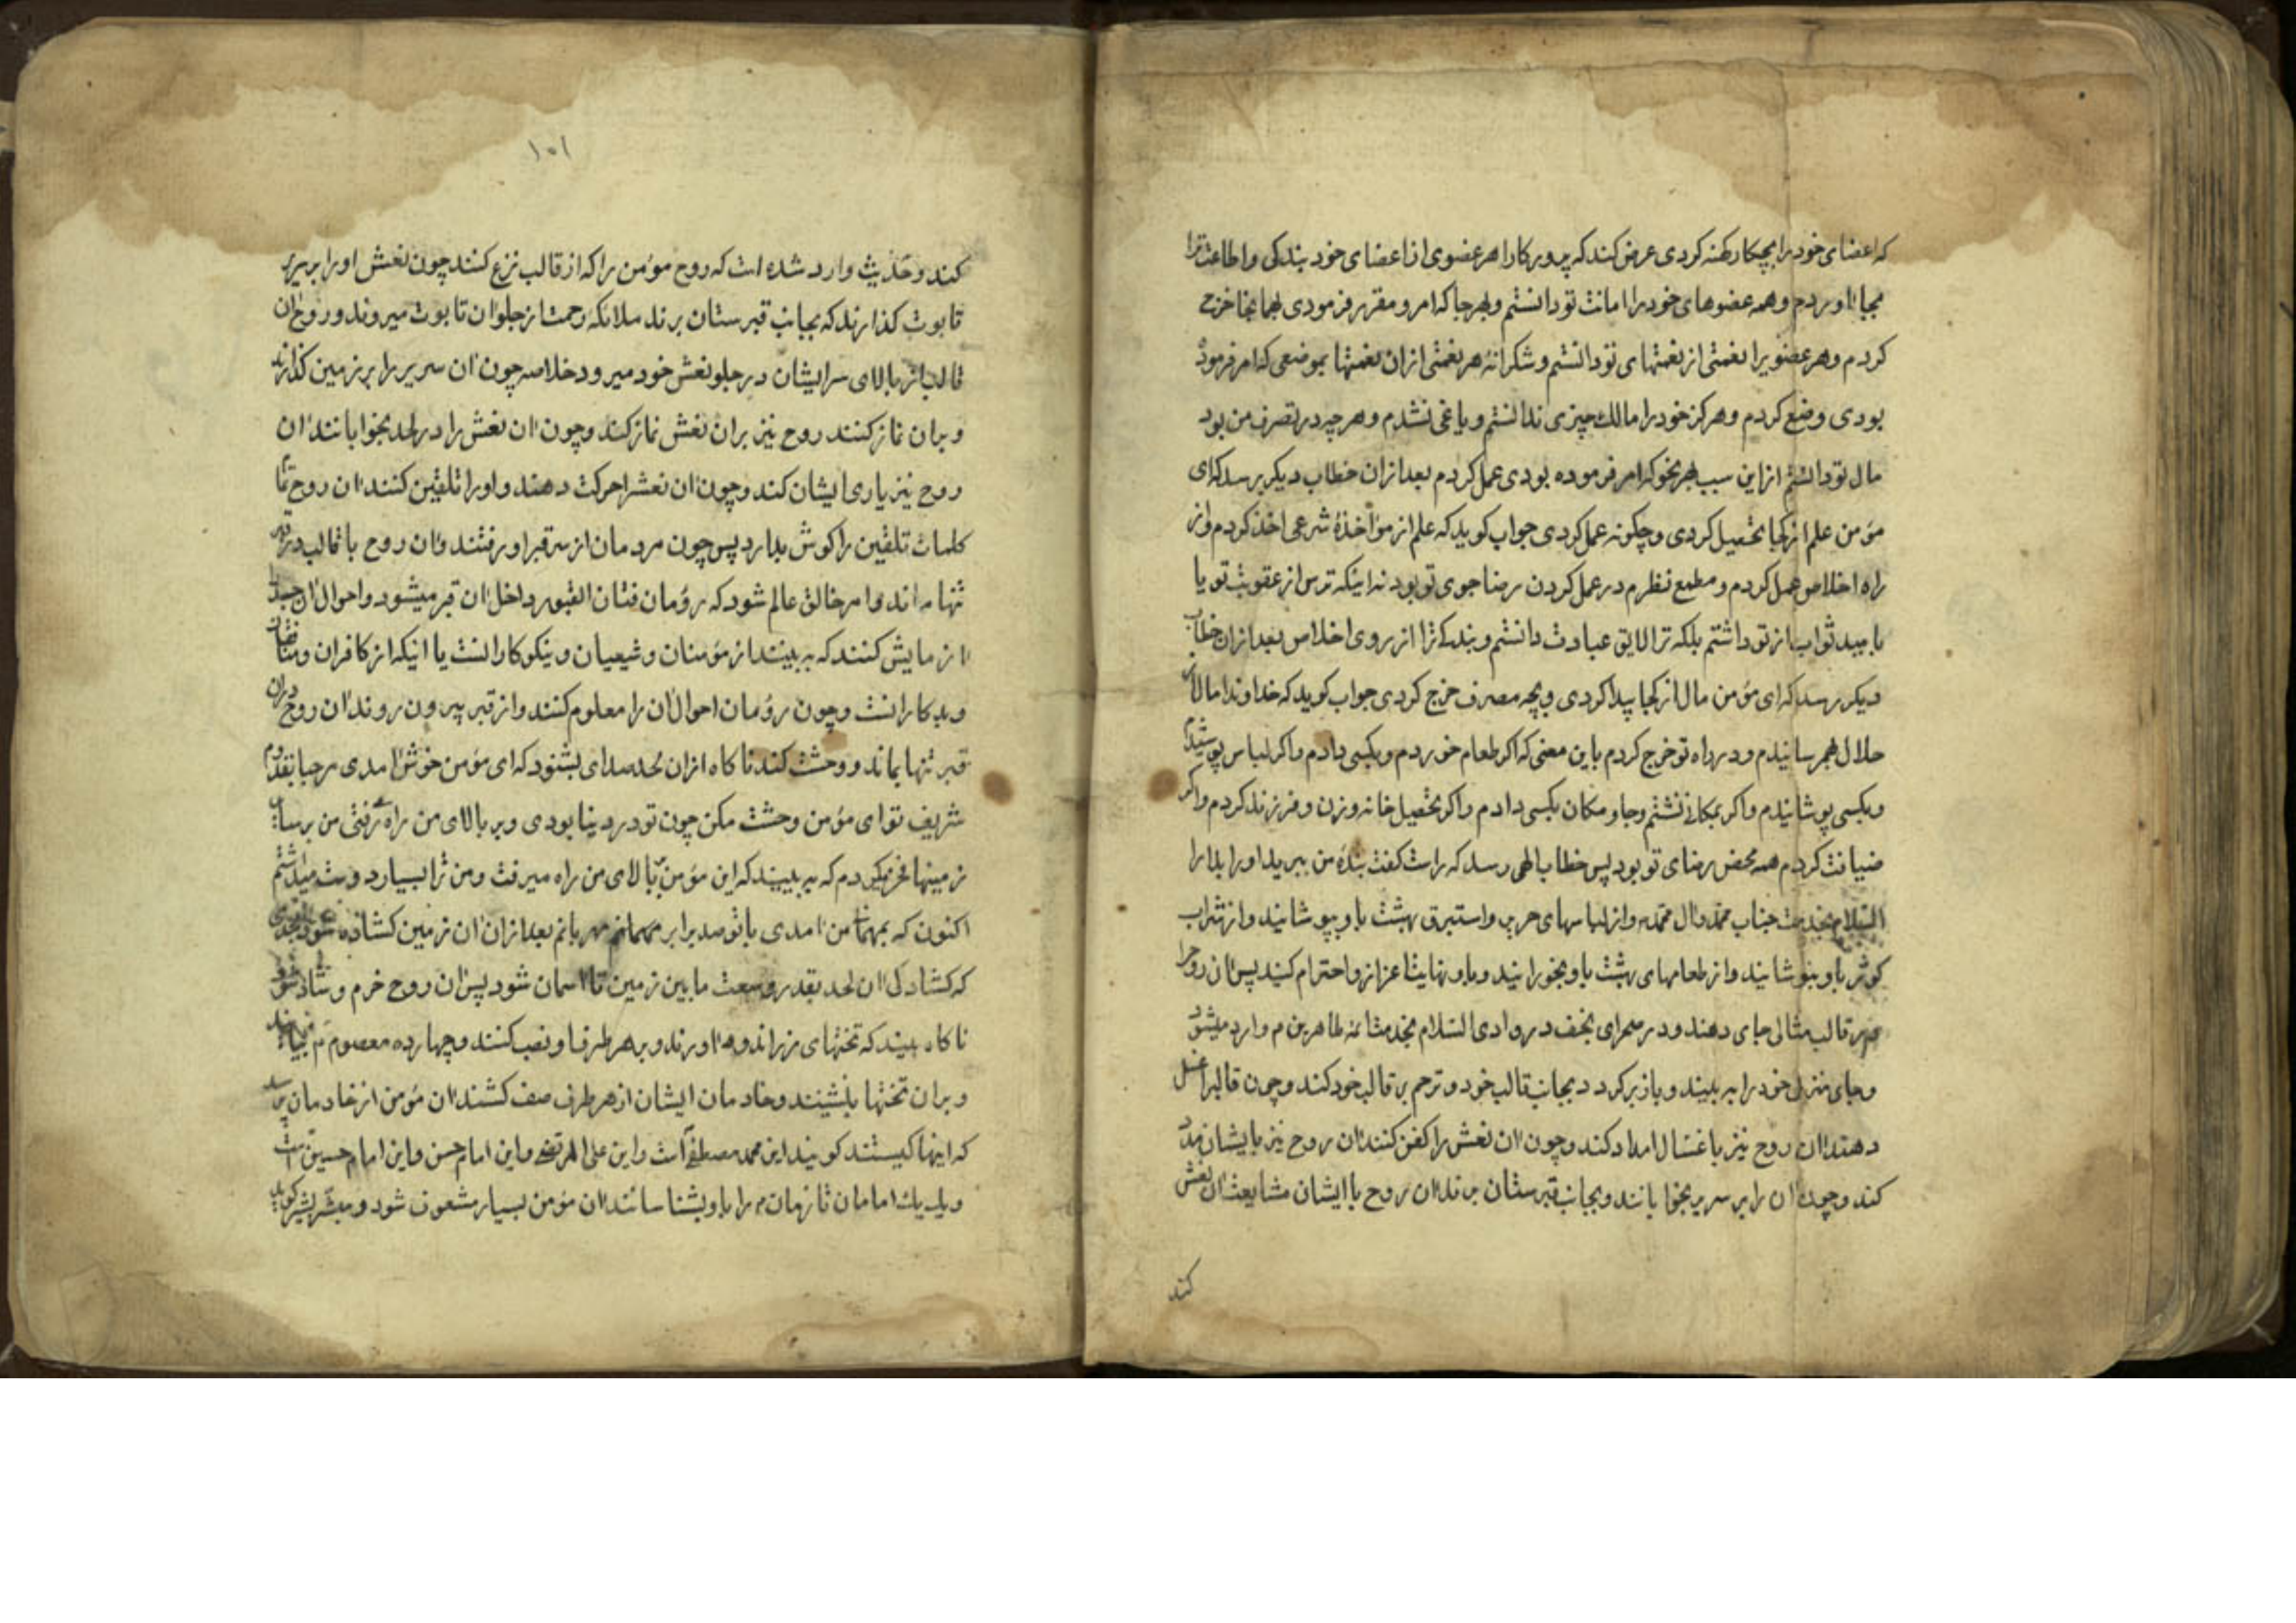 که اعضای خود را بچکار کهنه کردی عرض کند که پرورکارا هر عضوی از اعضای خود بندکی و اطاعت ترا
بجا اوردم وهمه عضوهای خود را امانت تو دانستم وبهر جا که امر و مقرر فرمودی بهمانجا خرج
کردم وهر عضویرا نعمتی از نعمتهای تو دانستم و شکرانۀ هر نعمتی از ان نعمتها بموضعی که امر فرموده
بودی وضع کردم وهرکز خود را مالك چیزی ندانستم و یاغی نشدم وهر چه در تصرف من بود
مال تو دانستم از این سبب بهر نحو که امر فرموده بودی عمل کردم بعد از ان خطاب دیکر رسد که ای
مؤمن علم از کجا تحصیل کردی و چکونه عمل کردی جواب کوید که علم از مؤاخذۀ شرعی اخذ کردم و از
راه اخلاص عمل کردم و مطمع نظرم در عمل کردن رضا جوی تو بود نه اینکه ترس از عقوبت تو یا
بامید ثواب از تو داشتم بلکه ترا لایق عبادت دانستم و بندکی ترا از روی اخلاص بعد از ان خطاب
دیکر رسد که ای مؤمن مال از کجا پیدا کردی و بچه مصرف خرج کردی جواب کوید که خداوندا مال از
حلال بهم رسانیدم و در راه تو خرج کردم باین معنی که اکر طعام خوردم و بکسی دادم و اکر لباس پوشیدم
و بکسی پوشانیدم و اکر بمکانی نشتم و جا و مکان بکسی دادم و اکر تحصیل خانه و زن و فرزند کردم و اکر
ضیافت کردم همه محض رضای تو بود پس خطاب الهی رسد که راست کفت بندۀ من ببرید او را بدار
السّلام بخدمت جناب محمّد و ال محمّد و از لباسهای حریر و استبرق بهشت باو بپوشانید و از شراب
کوثر باو بنوشانید و از طعامهای بهشت باو بخورانید و باو نهایت اعزاز و احترام کنید پس ان روح را
در قالب مثالی جای دهند و در صحرای نجف در وادی السّلام بخدمت ائمه طاهرین م وارد میشود
و جای منزل خود را به بیند و باز برکردد بجانب قالب خود و ترحم بر قالب خود کند و چون قالبرا غسل
دهند ان روح نیز با غسّال امداد کند و چون ان نعش را کفن کنند ان روح نیز بایشان مدد
کند و چون ان را بر سریر بخوابانند و بجانب قبرستان برند ان روح با ایشان مشایعت ان نعش
کند
۱۰۱
کند و حدیث وارد شده است که روح مؤمن را که از قالب نزع کنند چون نعش او را بر سریر
تابوت کذارند که بجانب قبرستان برند ملائکۀ رحمت از جلو ان تابوت میروند و روح ان
قالب از بالای سر ایشان در جلو نعش خود میرود خلاصه چون ان سریر را بر زمین کذارند
و بران نماز کنند روح نیز بران نعش نماز کند و چون ان نعش را در لحد بخوابانند ان
روح نیز یاری ایشان کند و چون ان نعشرا حرکت دهند و او را تلقین کنند ان روح تمام
کلمات تلقین را کوش بدارد پس چون مردمان از سر قبر او رفتند و ان روح با قالب در قبر
تنها ماند و امر خالق عالم شود که رؤمان فتان القبور داخل ان قبر میشود و احوال ان جسد
ازمایش کنند که به بینند از مؤمنان و شیعیان و نیکوکارانست یا اینکه از کافران و منافقان
و بدکارانست و چون رؤمان احوال ان را معلوم کنند و از قبر بیرون روند ان روح در ان
قبر تنها بماند و وحشت کند ناکاه از ان لحد صدای بشنود که ای مؤمن خوش امدی مرحبا بقدوم
شریف تو ای مؤمن وحشت مکن چون تو در دینا بودی و بر بالای من راه میرفتی من بر سایر
زمینها فخر میکردم که به بینید که این مؤمن بر بالای من راه میرفت و من ترا بسیار دوست میداشتم
اکنون که بمهمانی من امدی با تو صد برابر مهمانم مهربانم بعد از ان ان زمین کشاده شود بحدی
که کشادکی ان لحد بقدر وسعت مابین زمین تا اسمان شود پس ان روح خرم و شاد شود
ناکاه بیند که تختهای زر اندوده اورند و بر هر طرف او نصب کنند و چهارده معصوم م بیایند
و بران تختها بنشینند و خادمان ایشان از هر طرف صف کشند ان مؤمن از خادمان پرسد
که اینها کیستند کویند این محمد مصطفی است و این علی المرتضی و این امام حسن و این امام حسین است
و یك یك امامان تا زمان م را باو بشناسانند ان مؤمن بسیار مشعوف شود و مبشّر بشیر کوید